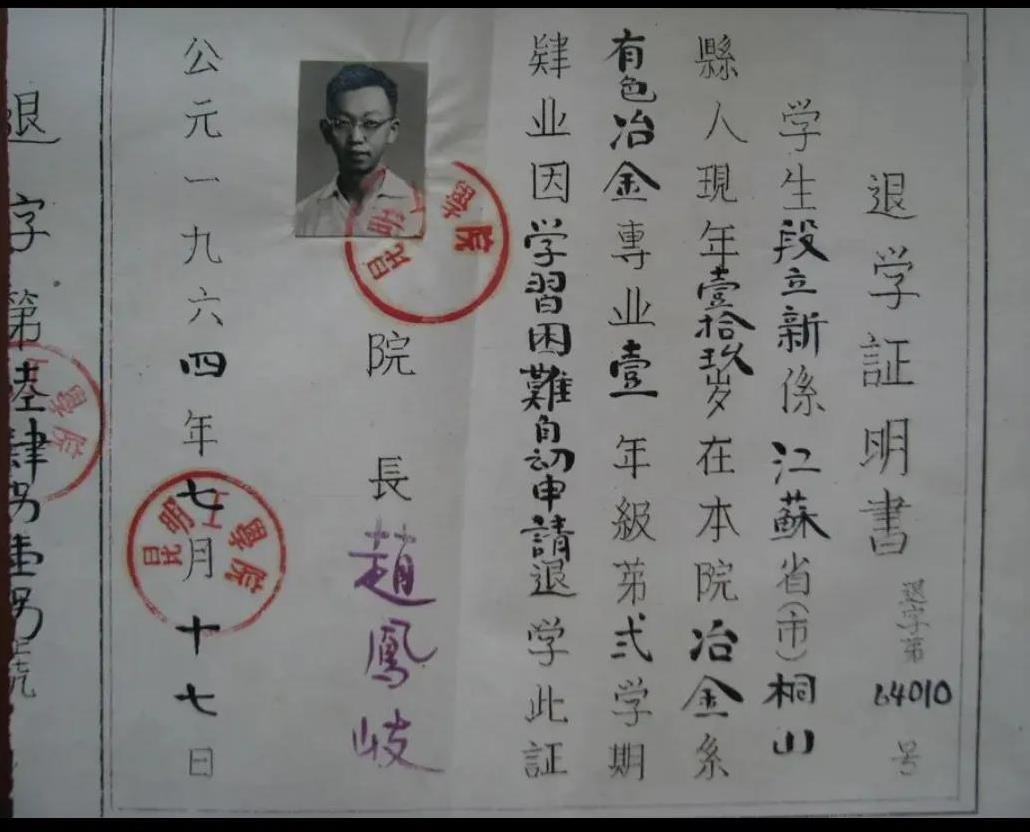 退学証明書
退字第64010号
学生段立新係江蘇省(市)桐山
縣人現年壹拾玖岁在本院冶金系
有色冶金專业壹年級第弍学期
肄业因学習困難自动申請退学此証
院長趙鳳岐
公元一九六四年七月十七日
昆明工學院
退字第陸肆另壹另號